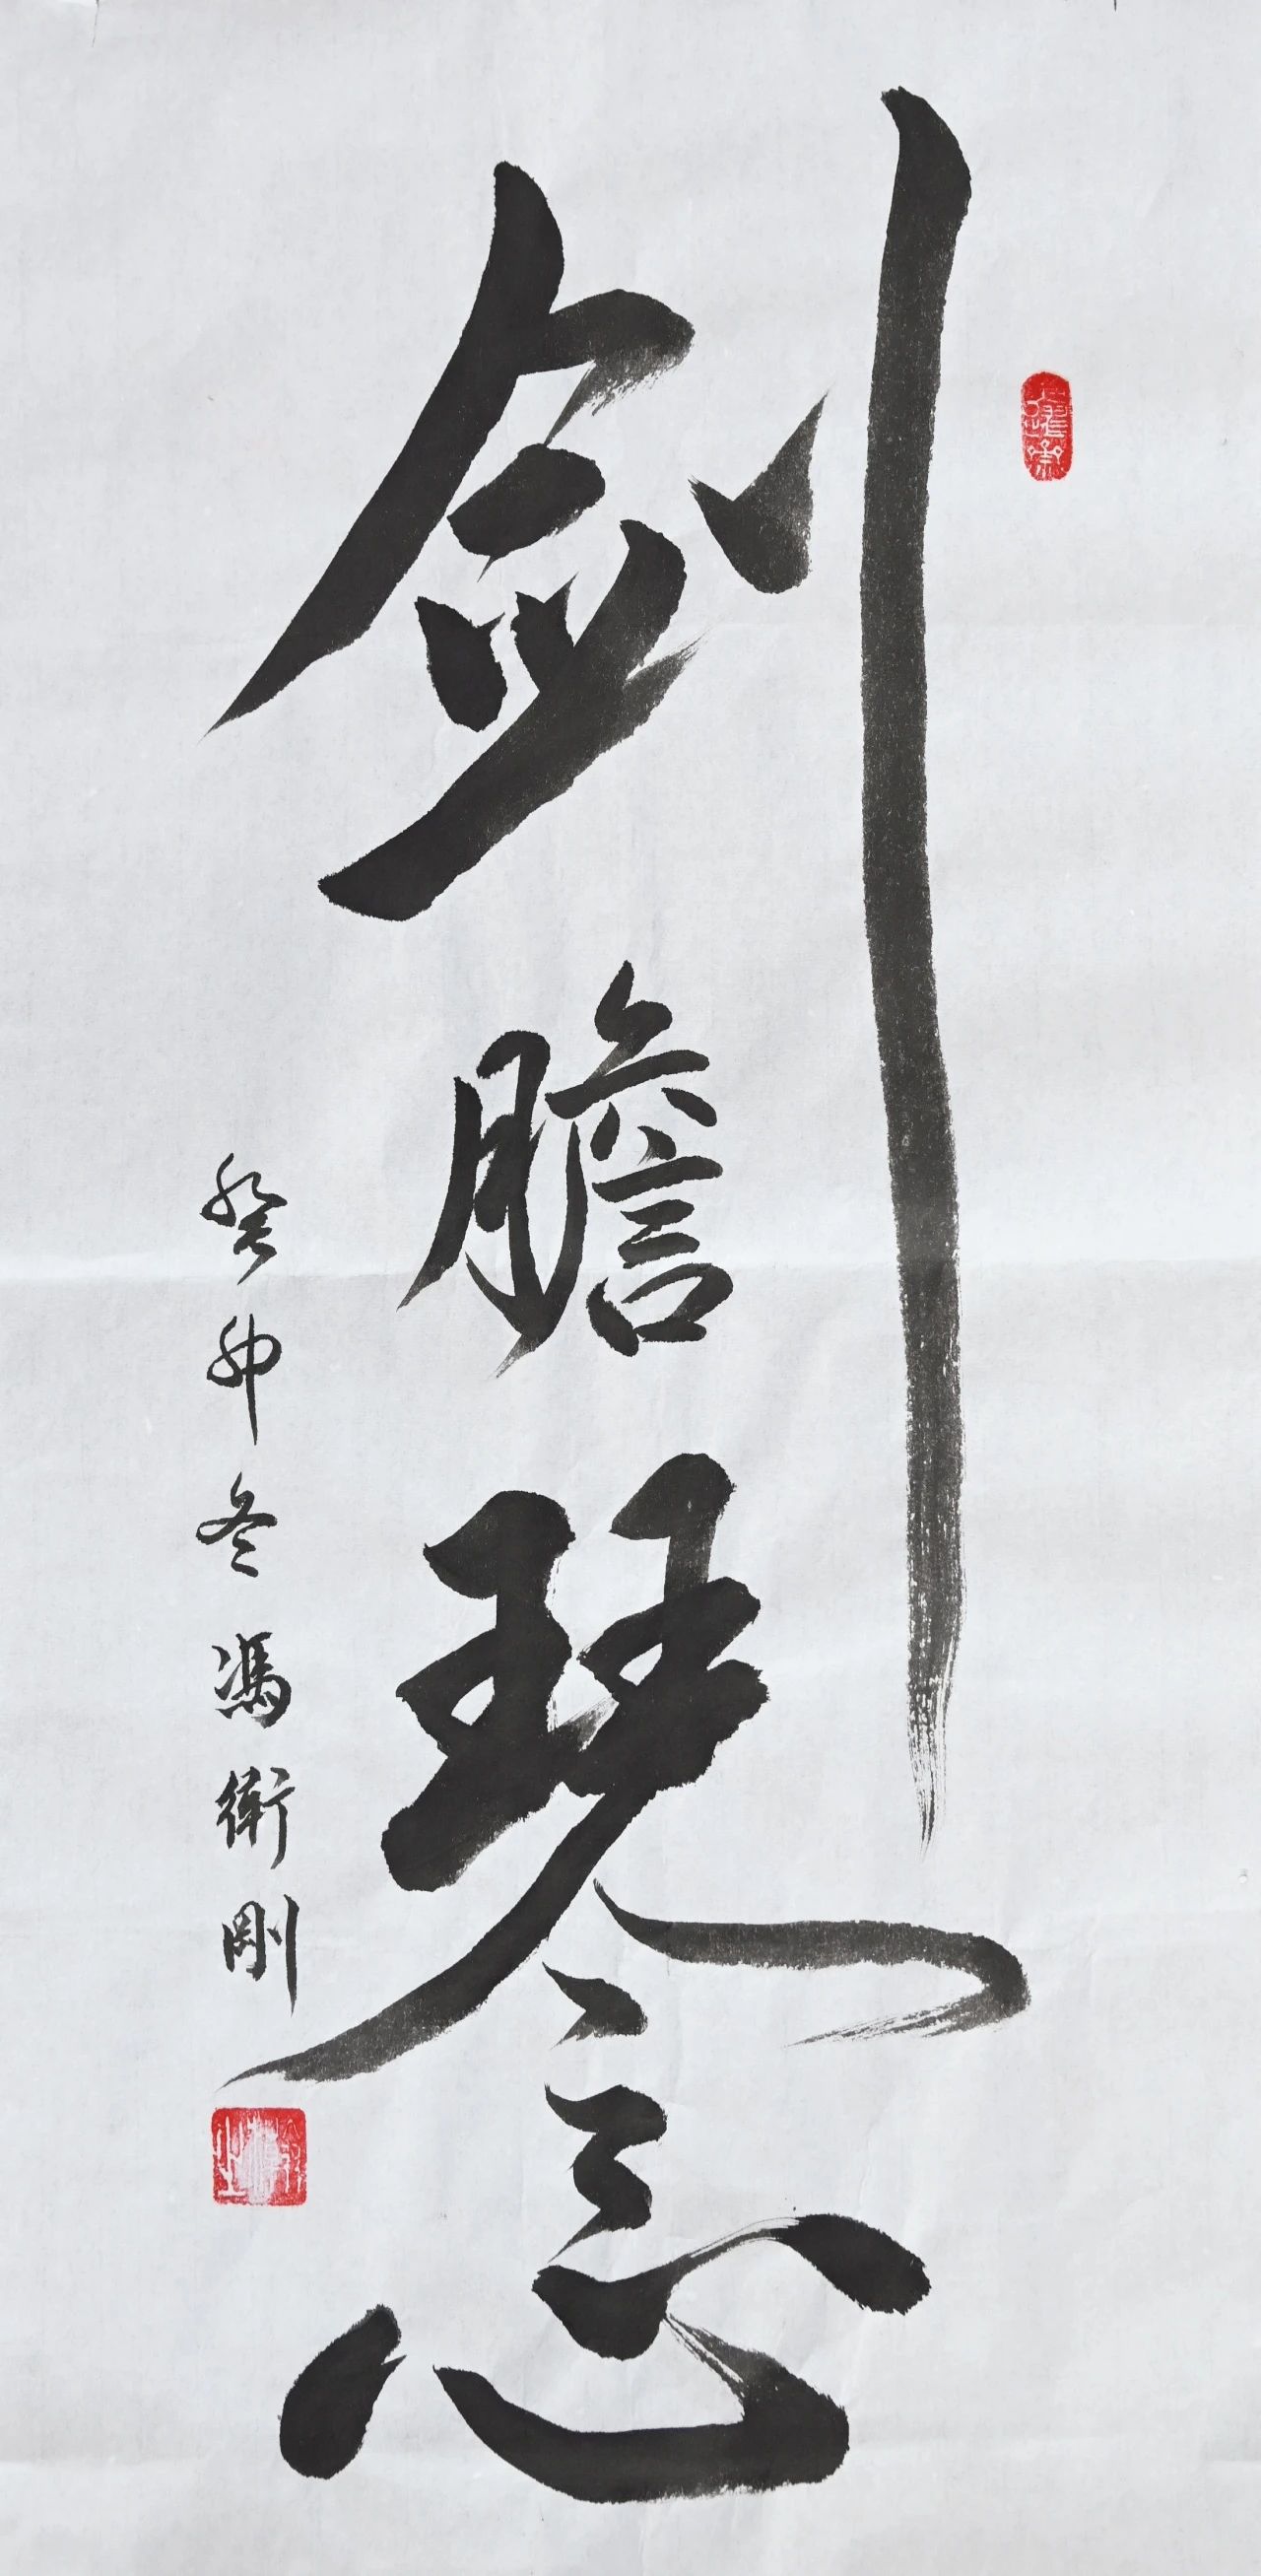 剑膽琴心
癸卯冬馮衛剛